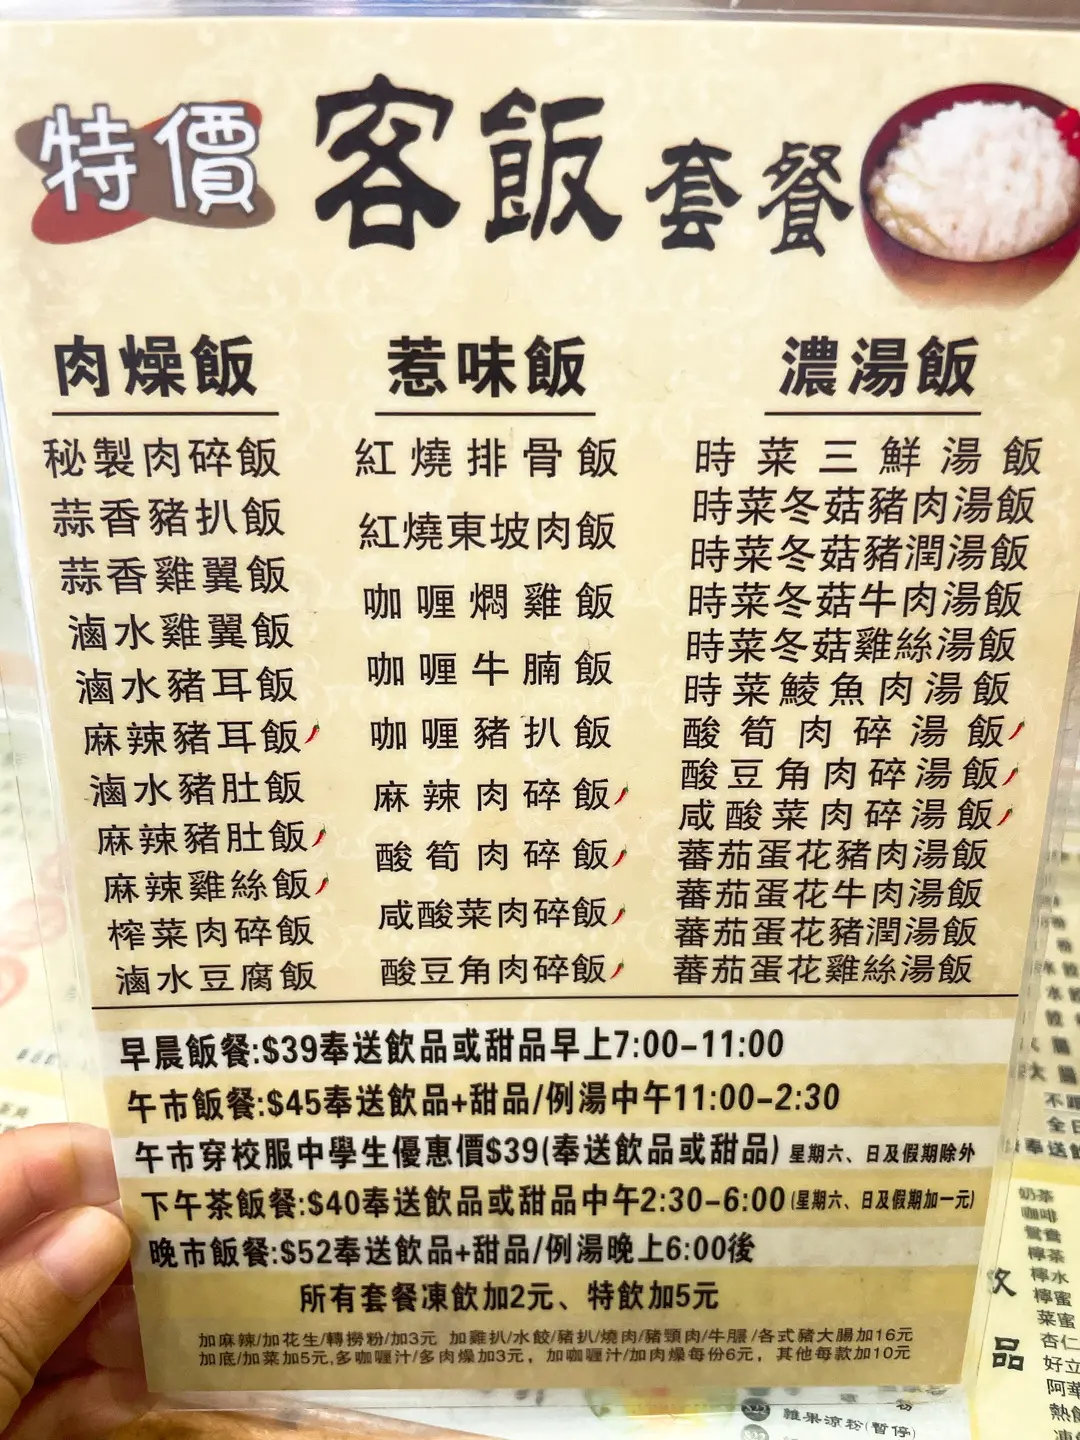 特價 客飯 套餐
肉燥飯
秘製肉碎飯
蒜香豬扒飯
蒜香雞翼飯
滷水雞翼飯
滷水豬耳飯
麻辣豬耳飯
滷水豬肚飯
麻辣豬肚飯
麻辣雞絲飯
榨菜肉碎飯
滷水豆腐飯
惹味飯
紅燒排骨飯
紅燒東坡肉飯
咖喱燜雞飯
咖喱牛腩飯
咖喱豬扒飯
麻辣肉碎飯
酸筍肉碎飯
咸酸菜肉碎飯
酸豆角肉碎飯
濃湯飯
時菜三鮮湯飯
時菜冬菇豬肉湯飯
時菜冬菇豬潤湯飯
時菜冬菇牛肉湯飯
時菜冬菇雞絲湯飯
時菜鯪魚肉湯飯
酸筍肉碎湯飯
酸豆角肉碎湯飯
咸酸菜肉碎湯飯
蕃茄蛋花豬肉湯飯
蕃茄蛋花牛肉湯飯
蕃茄蛋花豬潤湯飯
蕃茄蛋花雞絲湯飯
早晨飯餐:$39奉送飲品或甜品早上7:00-11:00
午市飯餐:$45奉送飲品+甜品/例湯中午11:00-2:30
午市穿校服中學生優惠價$39(奉送飲品或甜品) 星期六、日及假期除外
下午茶飯餐:$40奉送飲品或甜品中午2:30-6:00(星期六、日及假期加一元)
晚市飯餐:$52奉送飲品+甜品/例湯晚上6:00後
所有套餐凍飲加2元、特飲加5元
加麻辣/加花生/轉撈粉/加3元 加雞扒/水餃/豬扒/燒肉/豬頸肉/牛𦟌/各式豬大腸加16元
加底/加菜加5元,多咖喱汁/多肉燥加3元，加咖喱汁/加肉燥每份6元，其他每款加10元
全日
奉送飲
奶茶
咖啡
鴛鴦
檸茶
檸水
檸蜜
菜蜜
杏仁
好立
阿華
熱飲
品
雜果涼粉(暫停)